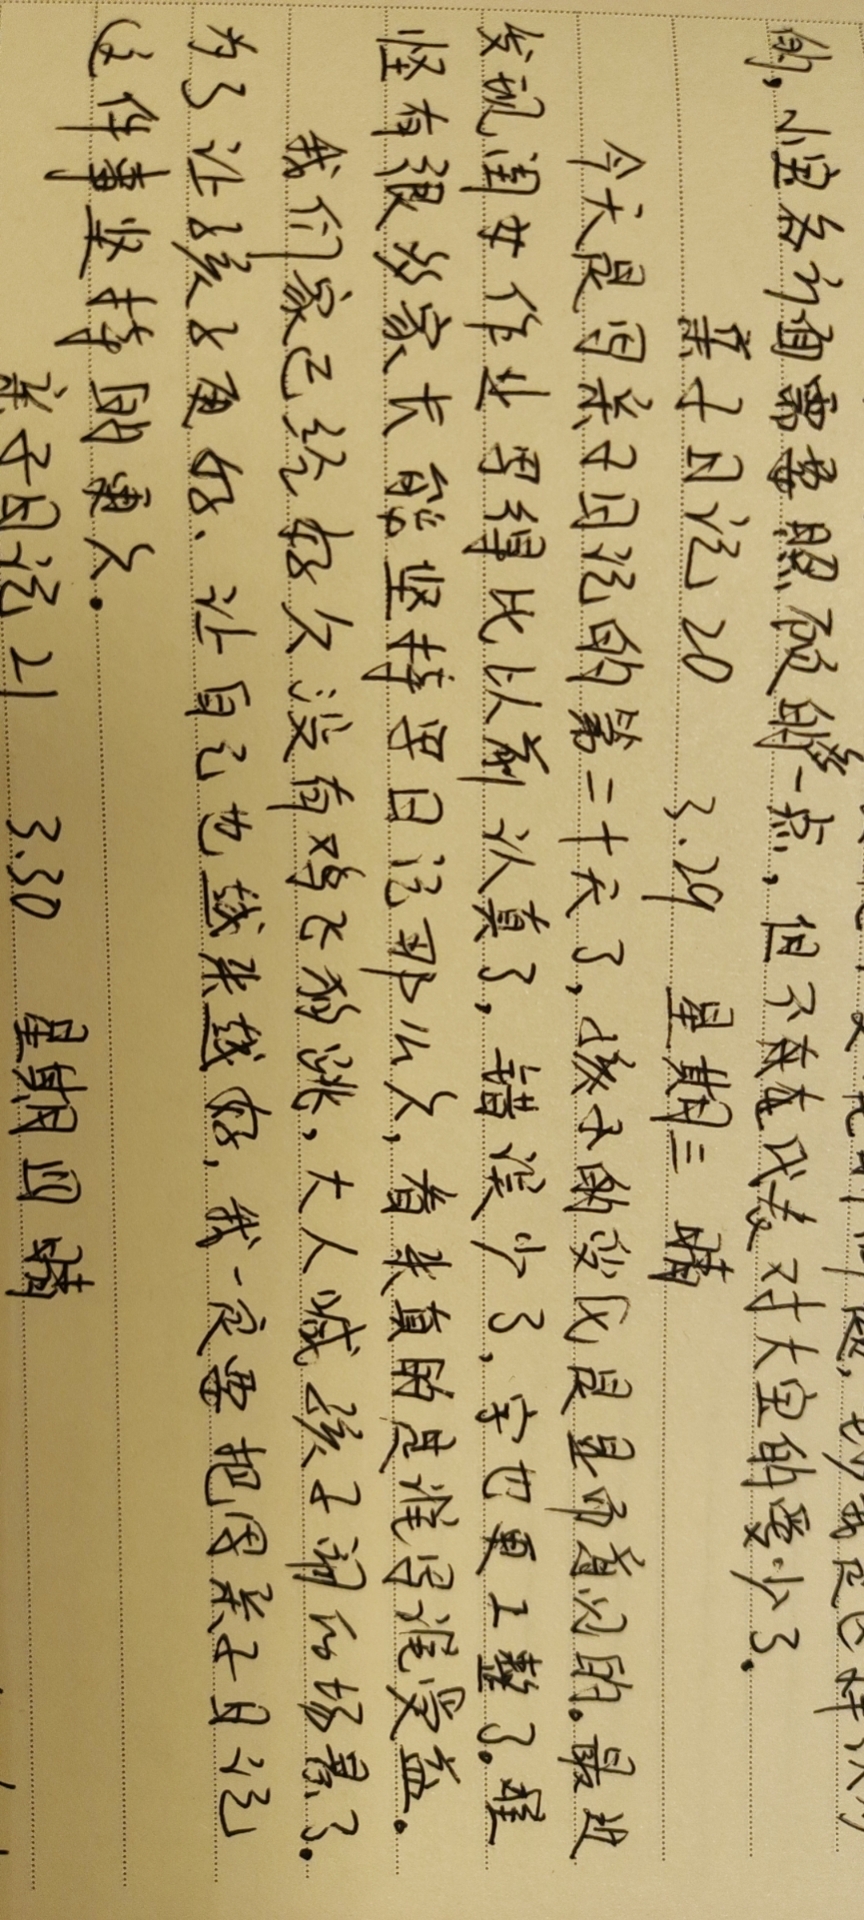 我是这样认为
的，小宝各方面需要照顾的多一点，但不本在代表对大宝的爱少了。
亲子日记20 3.29 星期三 晴
今天是写亲子日记的第二十天了，孩子的变化是显而易见的。最近
发现闺女作业写得比以前认真了，错误少了，字也更工整了。难
怪有很多家长能坚持写日记那么久，看来真的是谁写谁受益。
我们家已经好久没有鸡飞狗跳，大人喊孩子闹的场景了。
为了让孩子更好、让自己也越来越好，我一定要把写亲子日记
这件事坚持的更久.
亲子日记21 3.30 星期四 晴